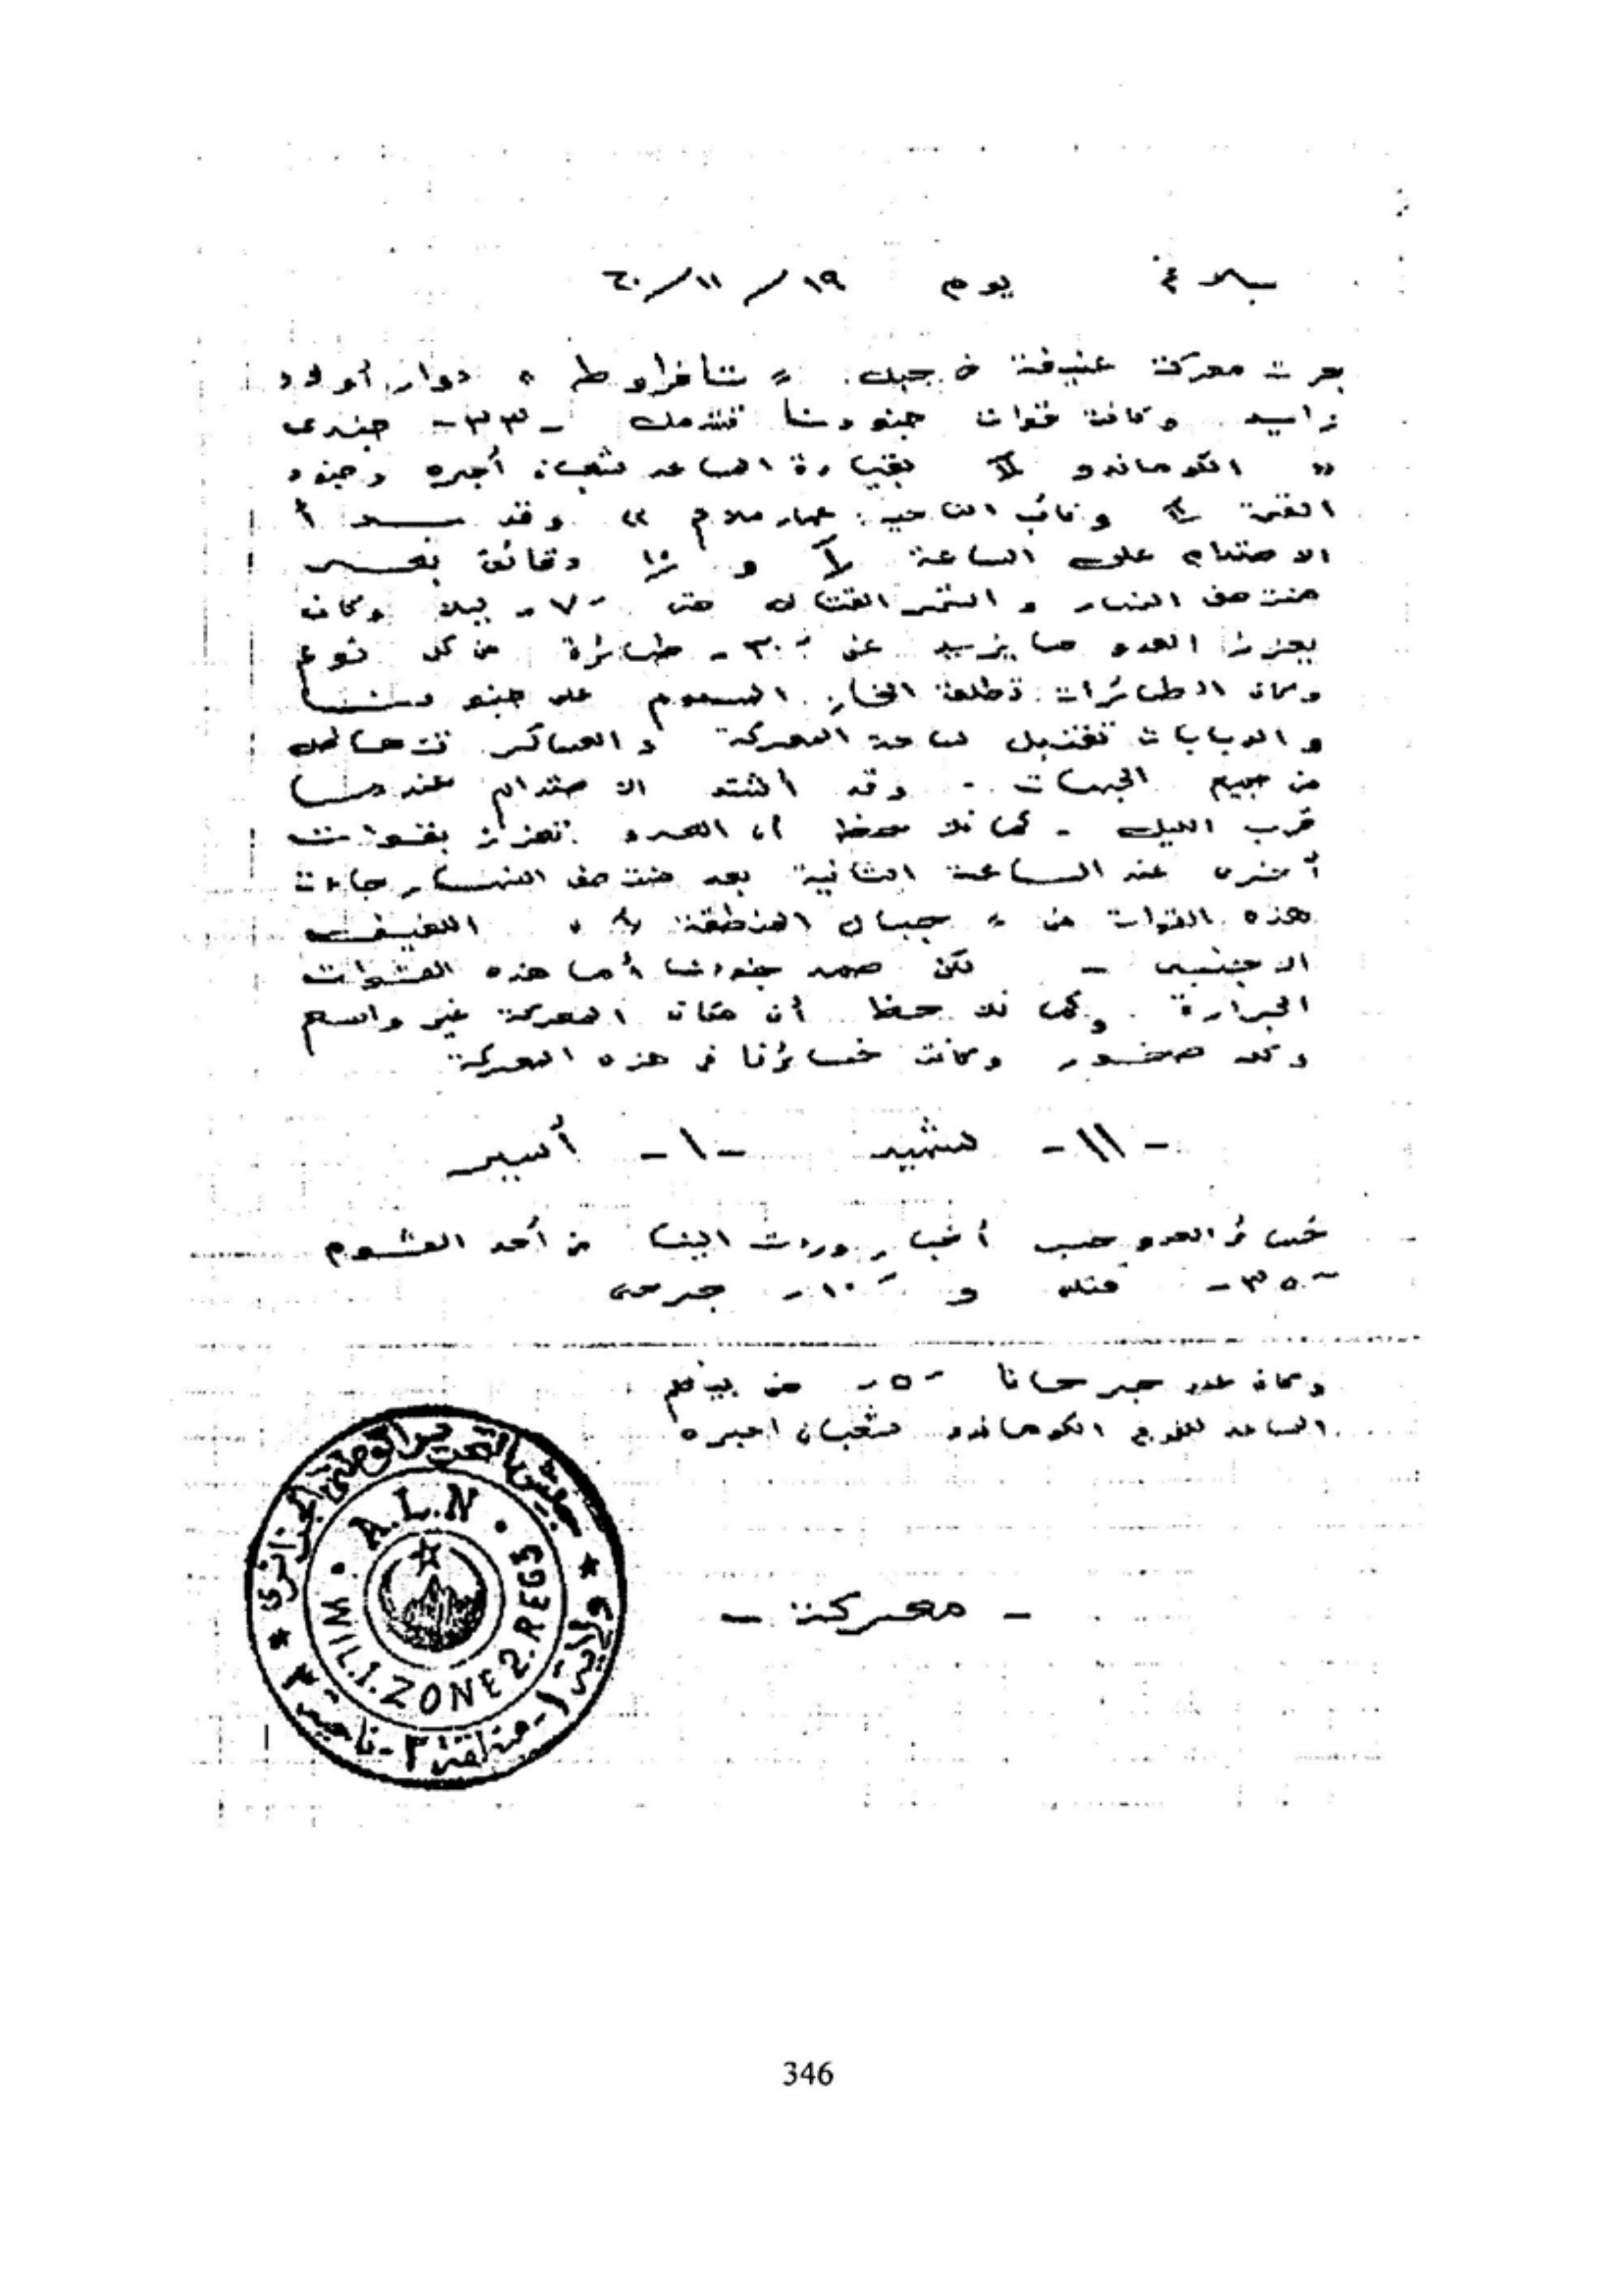 بلاغ يوم ١٩/١١/٦٠
جرت معركة عنيفة في جبل " تافراوط " دوار أولاد
زايد وكانت قوات جنودنا تشمل -٣٣- جندي
" الكوماندو بقيادة المساعد شعبان أجبره وجنود
القسمة ونائب الناحية: عمار ملاح " وقد بدأ
الاصتدام على الساعة و ١٠ دقائق بعد
منتصف النهار و استمر القتال حتى -٧- ليلا وكان
يعزز العدو ما يزيد عن -٣٠- طائرة من كل نوع
وكان الطائرات تطلق الغاز المسموم على جنودنا
و الدبابات تقنبل ساحة المعركة و العساكر
من جميع الجهات - وقد اشتد الاصتدام عندما
قرب الليل - كما نلاحظ أن العدو تعزز بقوات
أخرى عند الساعة الثانية بعد منتصف النهار جاءت
هذه القوات من " جبال المنطقة " اللفيف
الاجنبي - لكن صمد جنودنا أما هذه القوات
الجرارة . وكما نلاحظ أن مكان المعركة غير واسع
وكله صخور وكانت خسائرنا في هذه المعركة
-١١- شهيد -١- أسير
خسائر العدو حسب أخبار وردت الينا من أحد القوم
-٣٥- قتلى و -١٠- جرحى
وكان عدد جرحانا -٥- من بينهم
المساعد للفوج الكوماندو شعبان اجبره
- معركة -
جيش التحرير الوطني الجزائري
ولاية ١ - منطقة ٢ - ناحية ٣
A.L.N
WIL.1.ZONE 2.REG3
346